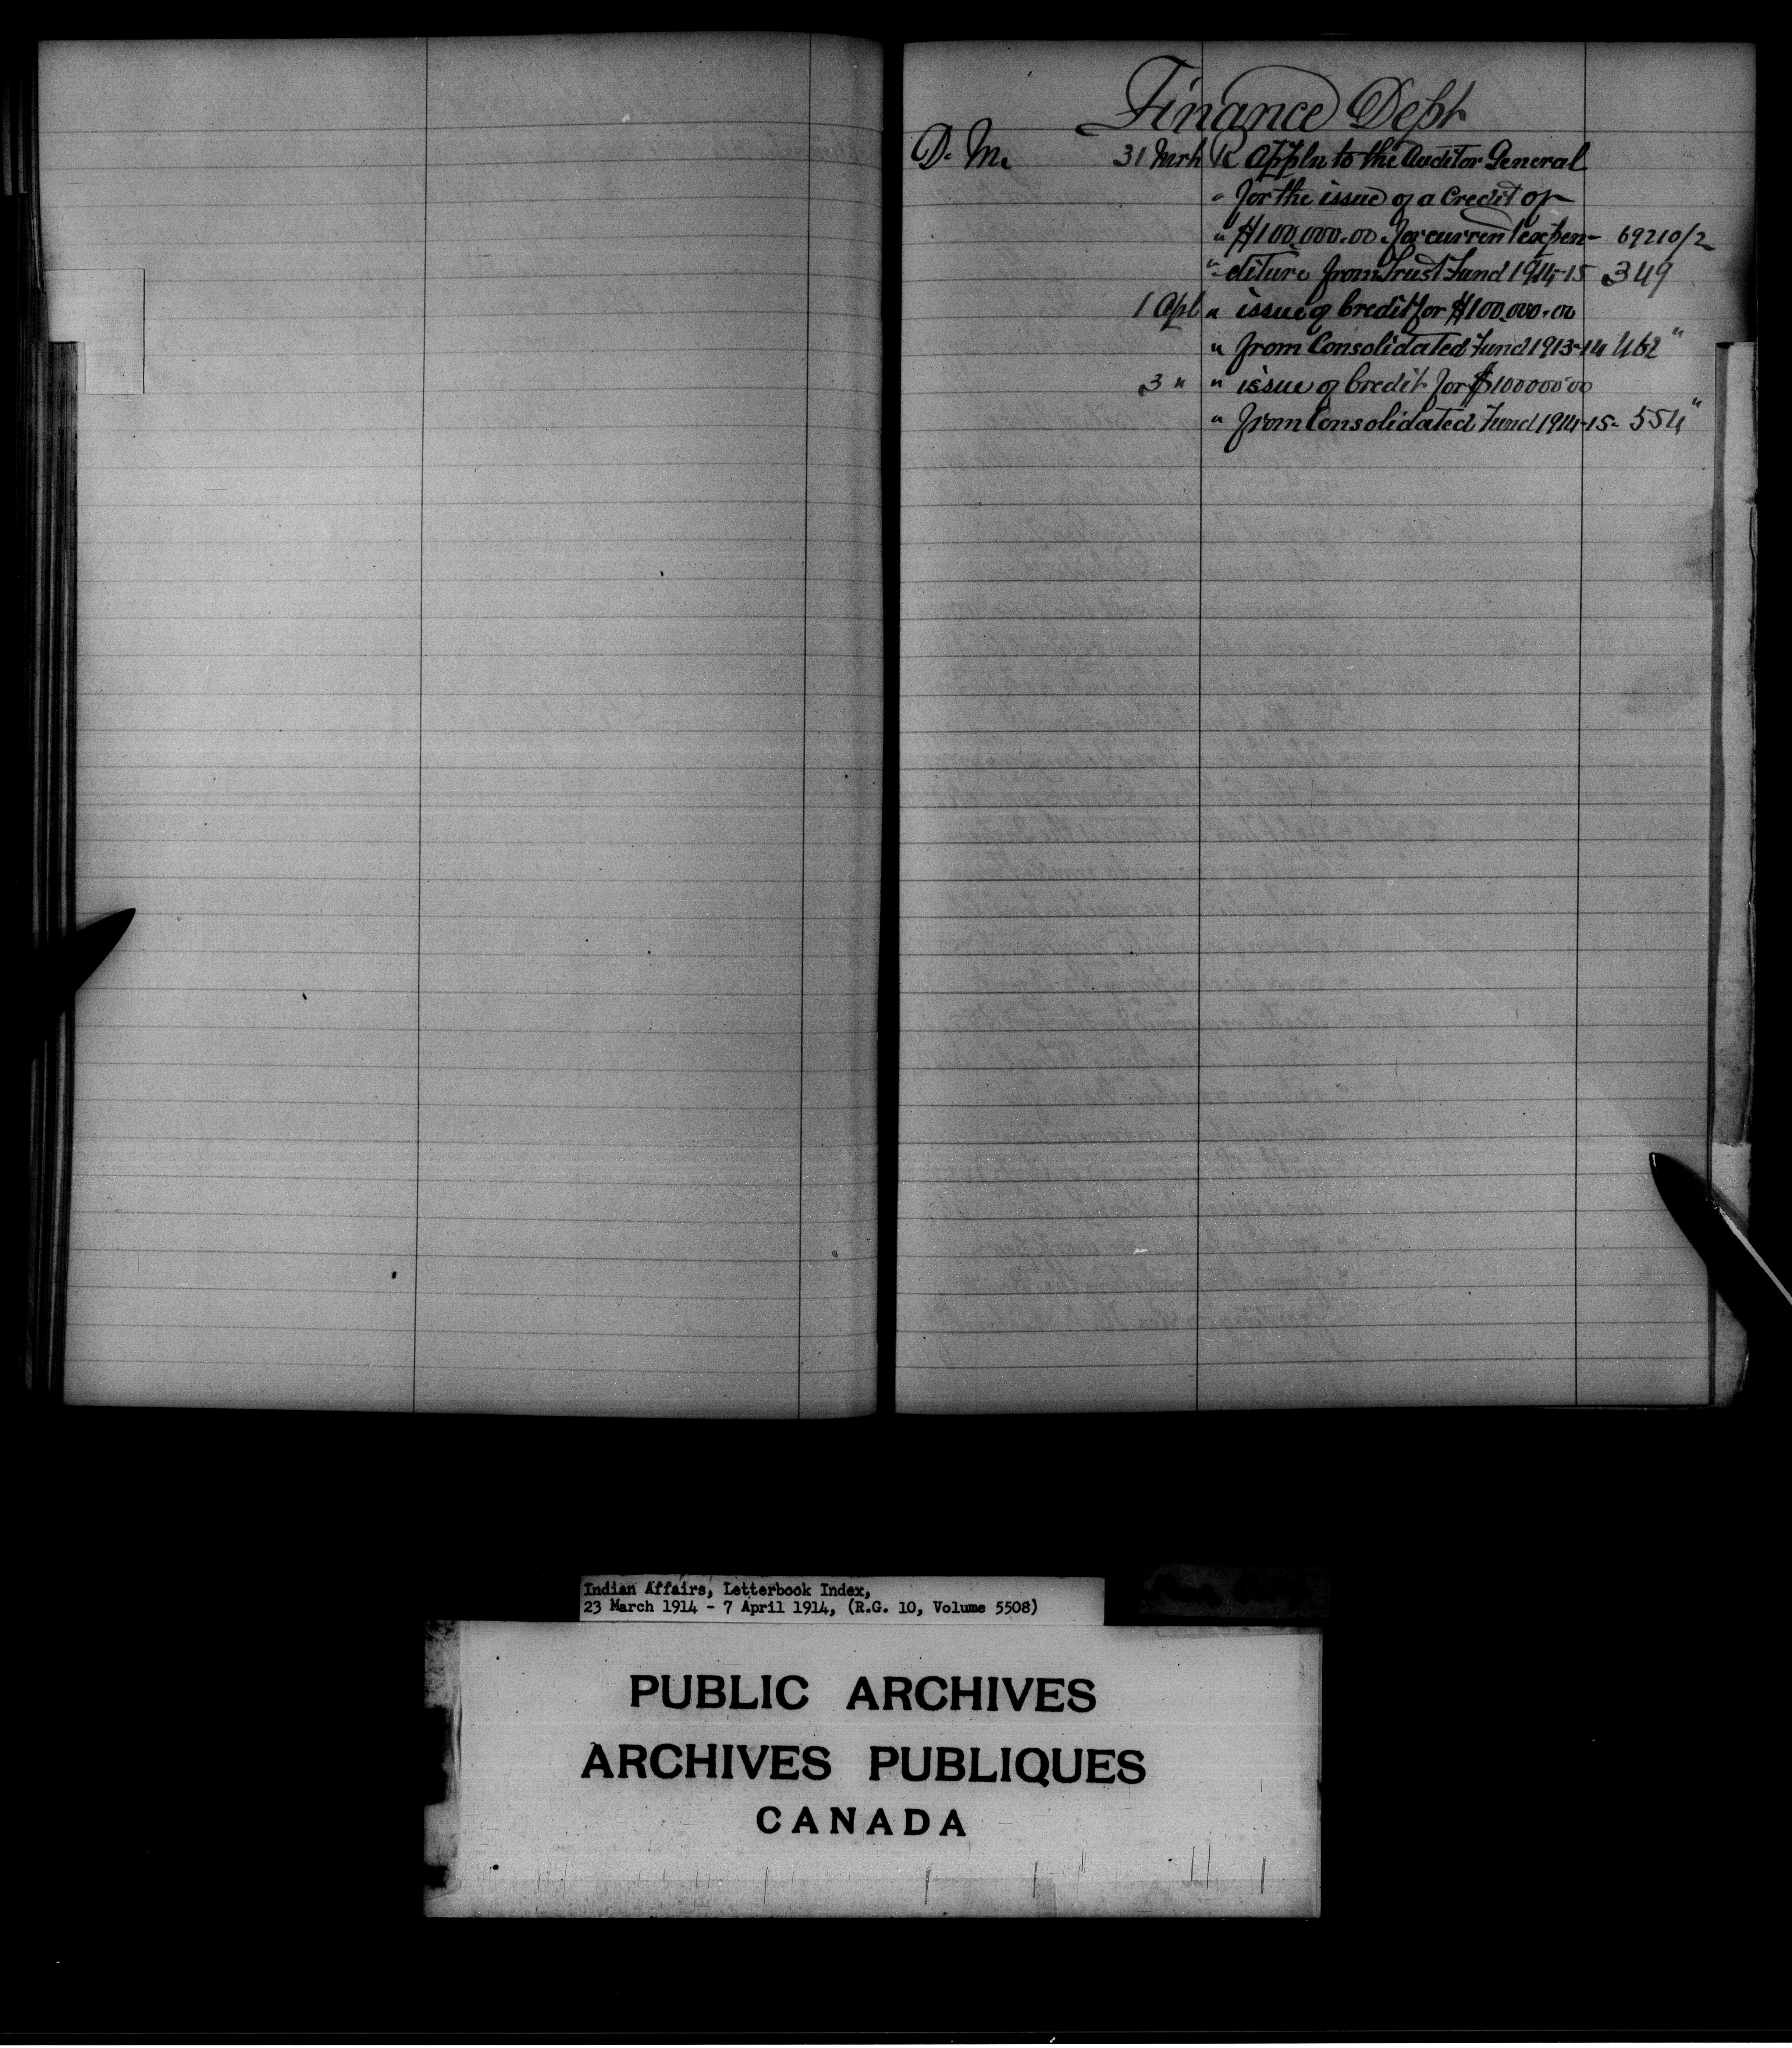 Finance Dept
D. M. 31 Mrh R Appln to the Auditor General
" for the issue of a Credit of
" $100,000.00 for current expen- 69210/2
" diture from Trust Fund 1914-15 349
1 Apl " issue of Credit for $100,000.00
" from Consolidated Fund 1913-14 462 "
3 " " issue of Credit for $100000.00
" from Consolidated Fund 1914-15- 554 "
Indian Affairs, Letterbook Index,
23 March 1914 - 7 April 1914, (R.G. 10, Volume 5508)
PUBLIC ARCHIVES
ARCHIVES PUBLIQUES
CANADA